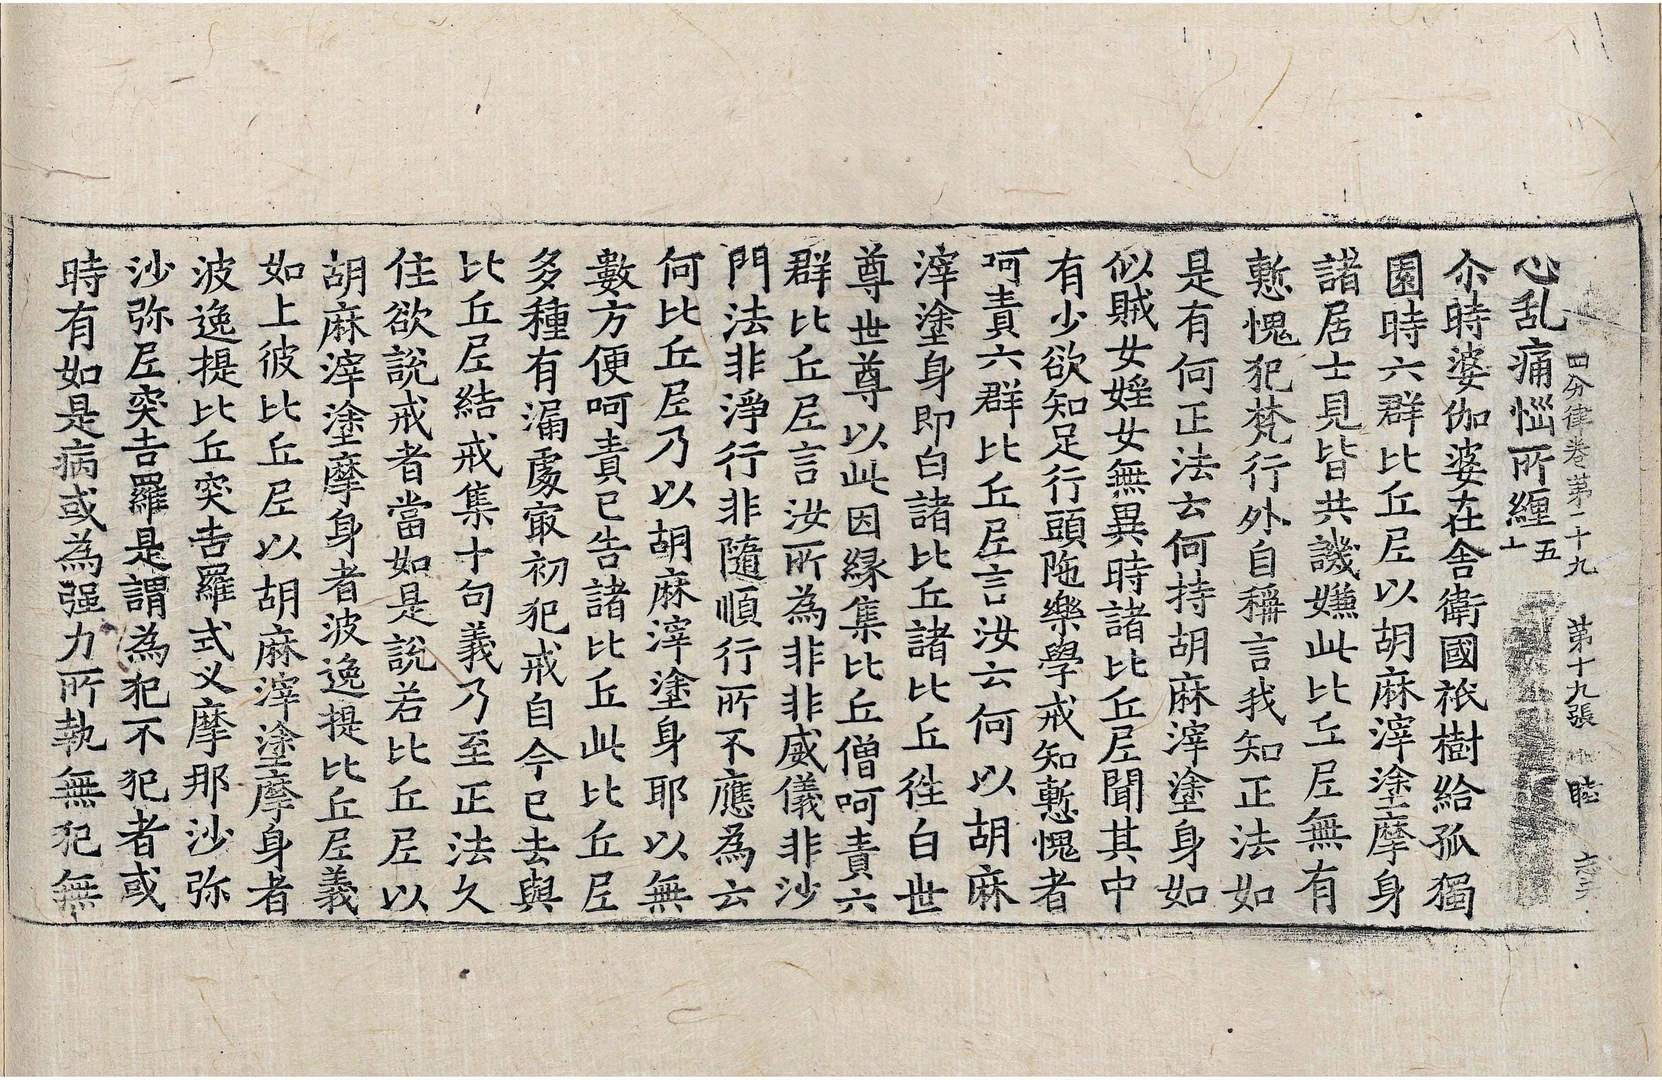 四分律卷第二十九　第十九張　睦
心乱痛惱所纏五十
尒時婆伽婆在舍衛國祇樹給孤獨
園時六群比丘尼以胡麻滓塗摩身
諸居士見皆共譏嫌此比丘尼無有
慙愧犯梵行外自稱言我知正法如
是有何正法云何持胡麻滓塗身如
似賊女婬女無異時諸比丘尼聞其中
有少欲知足行頭陁樂學戒知慙愧者
呵責六群比丘尼言汝云何以胡麻
滓塗身即白諸比丘諸比丘徃白世
尊世尊以此因緣集比丘僧呵責六
群比丘尼言汝所為非非威儀非沙
門法非淨行非隨順行所不應為云
何比丘尼乃以胡麻滓塗身耶以無
數方便呵責已告諸比丘此比丘尼
多種有漏處㝡初犯戒自今已去與
比丘尼結戒集十句義乃至正法久
住欲說戒者當如是說若比丘尼以
胡麻滓塗摩身者波逸提比丘尼義
如上彼比丘尼以胡麻滓塗摩身者
波逸提比丘突吉羅式叉摩那沙弥
沙弥尼突吉羅是謂為犯不犯者或
時有如是病或為强力所執無犯無